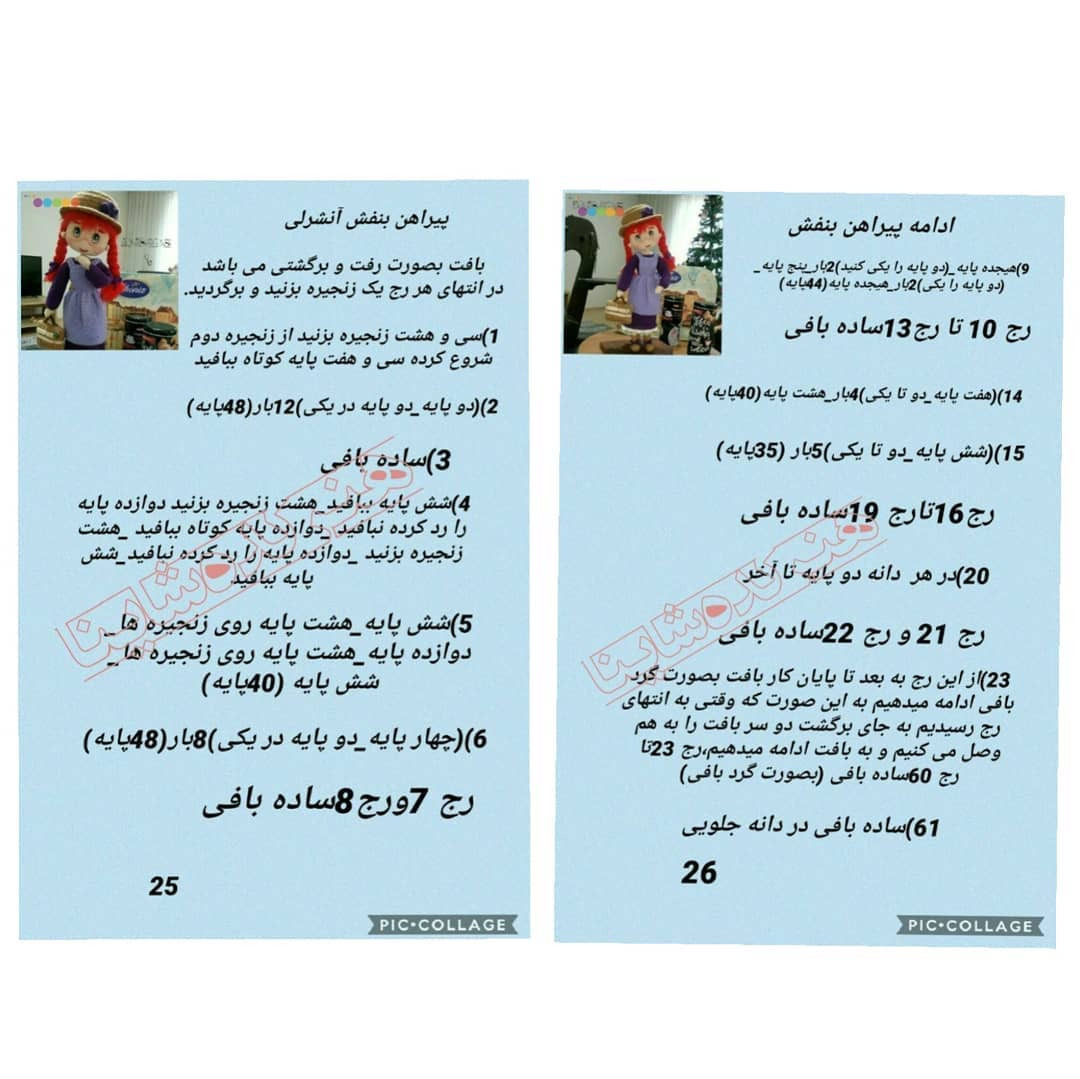 پیراهن بنفش آنشرلی
بافت بصورت رفت و برگشتی می باشد
در انتهای هر رج یک زنجیره بزنید و برگردید.
1)سی و هشت زنجیره بزنید از زنجیره دوم
شروع کرده سی و هفت پایه کوتاه ببافید
2)(دو پایه_دو پایه در یکی)12بار(48پایه)
3)ساده بافی
4)شش پایه ببافید_هشت زنجیره بزنید دوازده پایه
را رد کرده نبافید_دوازده پایه کوتاه ببافید _هشت
زنجیره بزنید _دوازده پایه را رد کرده نبافید_شش
پایه ببافید
5)شش پایه_هشت پایه روی زنجیره ها_
دوازده پایه_هشت پایه روی زنجیره ها_
شش پایه (40پایه)
6)(چهار پایه_دو پایه در یکی)8بار(48پایه)
رج 7ورج8ساده بافی
هنرکده شاینا
25
PIC•COLLAGE
ادامه پیراهن بنفش
9)هیجده پایه_(دو پایه را یکی کنید)2بار_پنج پایه_
(دو پایه را یکی)2بار_هیجده پایه(44پایه)
رج 10 تا رج13ساده بافی
14)(هفت پایه_دو تا یکی)4بار_هشت پایه(40پایه)
15)(شش پایه_دو تا یکی)5بار (35پایه)
رج16تارج 19ساده بافی
20)در هر دانه دو پایه تا آخر
رج 21 و رج 22ساده بافی
23)از این رج به بعد تا پایان کار بافت بصورت گرد
بافی ادامه میدهیم به این صورت که وقتی به انتهای
رج رسیدیم به جای برگشت دو سر بافت را به هم
وصل می کنیم و به بافت ادامه میدهیم،رج 23تا
رج 60ساده بافی (بصورت گرد بافی)
61)ساده بافی در دانه جلویی
هنرکده شاینا
26
PIC•COLLAGE